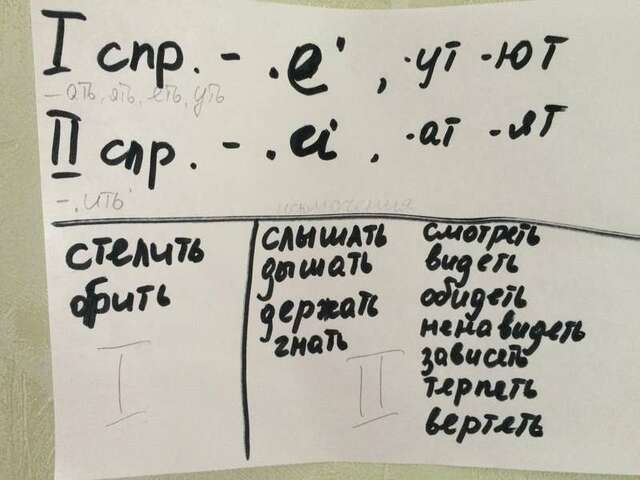 I спр. - .е , .ут -ют
-ать, ять, еть, уть
II спр. - .и , .ат -ят
-.ить
исключения
стелить
обрить
I
слышать
дышать
держать
гнать
II
смотреть
видеть
обидеть
ненавидеть
зависеть
терпеть
вертеть